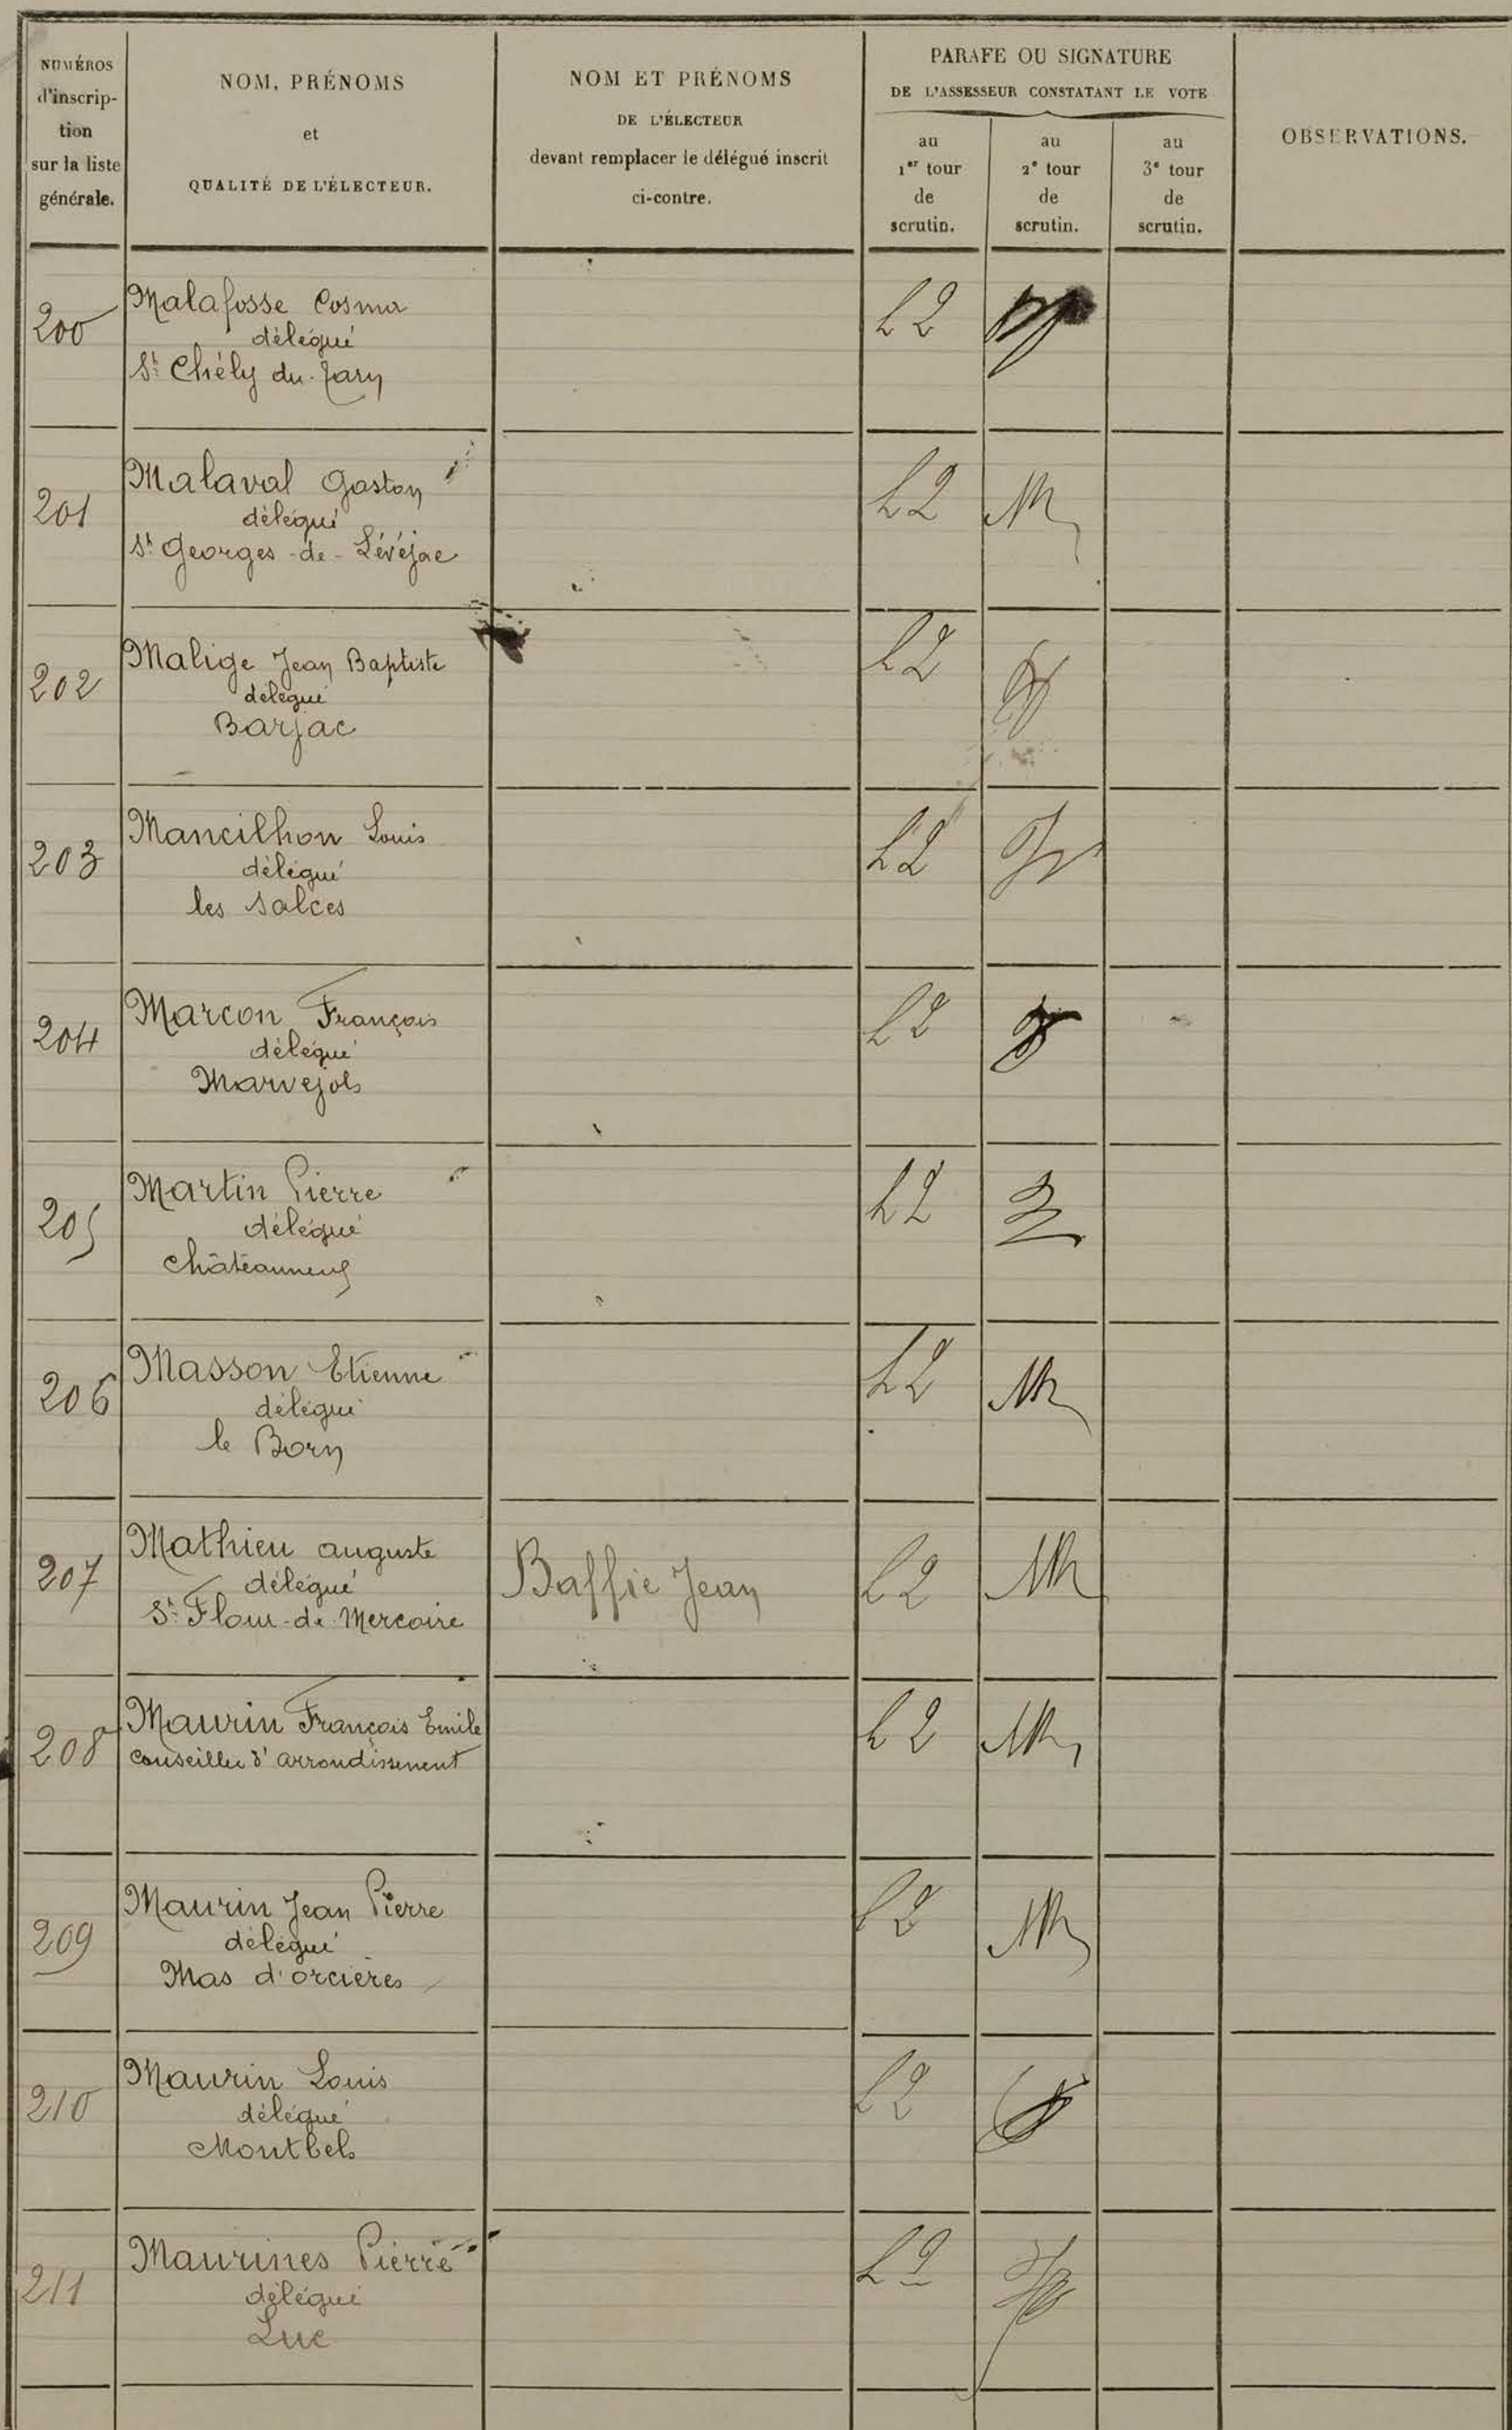 NUMÉROS
d'inscrip-
tion
sur la liste
générale.
NOM, PRÉNOMS
et
QUALITÉ DE L'ÉLECTEUR.
NOM ET PRÉNOMS
DE L'ÉLECTEUR
devant remplacer le délégué inscrit
ci-contre.
PARAFE OU SIGNATURE
DE L'ASSESSEUR CONSTATANT LE VOTE
au
1er tour
de
scrutin.
au
2e tour
de
scrutin.
au
3e tour
de
scrutin.
OBSERVATIONS.
200
Malafosse Cosma
délégué
St Chély du-Tarn
201
Malaval Gaston
délégué
St Georges-de-Lévéjac
202
Malige Jean Baptiste
délégué
Barjac
203
Mancilhon Louis
délégué
les Salces
204
Marcon François
délégué
Marvejols
205
Martin Pierre
délégué
Châteauneuf
206
Masson Etienne
délégué
le Born
207
Mathieu auguste
délégué
St Flour-de-Mercoire
Baffie Jean
208
Maurin François Emile
Conseiller d'arrondissement
209
Maurin Jean Pierre
délégué
Mas d'orcières
210
Maurin Louis
délégué
Montbels
211
Maurines Pierre
délégué
Luc